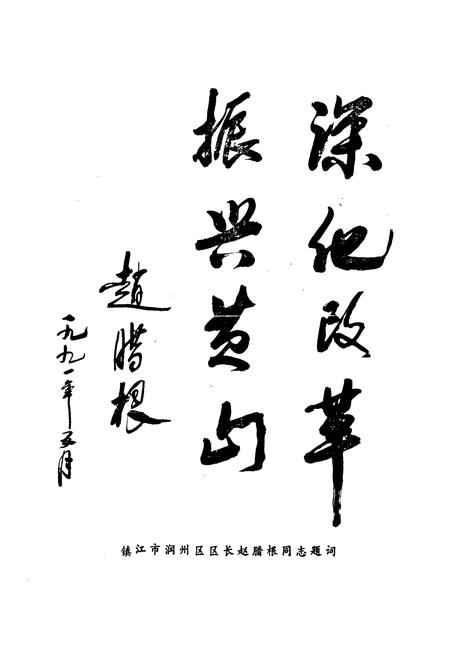 深化改革
振兴黄山
趙腊根
一九九一年五月
镇江市润州区区长赵腊根同志题词